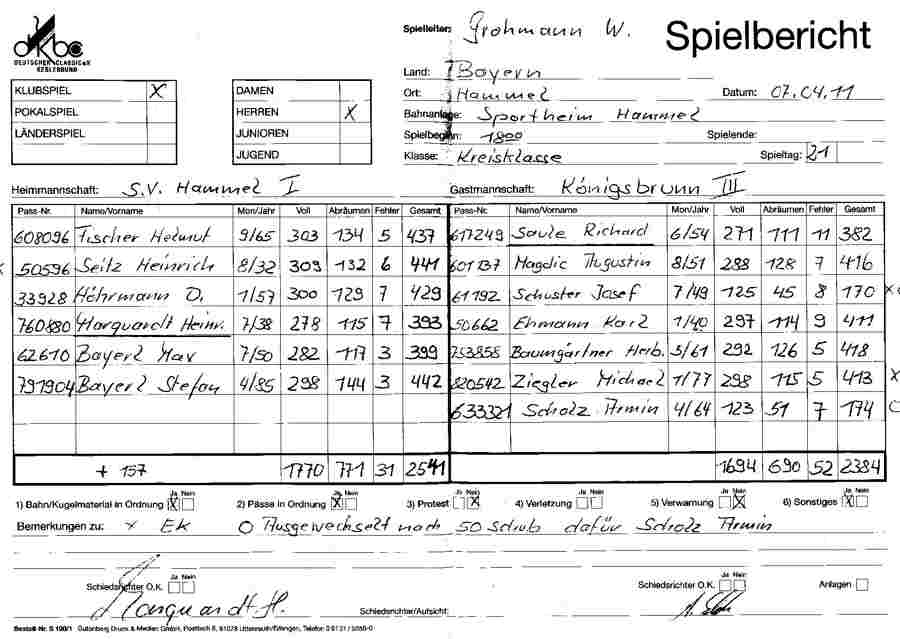 dkbc
DEUTSCHER CLASSIC-KEGLERBUND
Spielleiter: Grohmann W.
Spielbericht
KLUBSPIEL X
POKALSPIEL
LÄNDERSPIEL
DAMEN
HERREN X
JUNIOREN
JUGEND
Land: Bayern
Ort: Hammel Datum: 07.04.11
Bahnanlage: Sportheim Hammel
Spielbeginn: 1800 Spielende:
Klasse: Kreisklasse Spieltag: 21
Heimmannschaft: S.V. Hammel I Gastmannschaft: Königsbrunn III
Pass-Nr. Name/Vorname Mon/Jahr Voll Abräumen Fehler Gesamt Pass-Nr. Name/Vorname Mon/Jahr Voll Abräumen Fehler Gesamt
608096 Fischer Helmut 9/65 303 134 5 437 617249 Saule Richard 6/54 271 111 11 382
x 50596 Seitz Heinrich 8/32 309 132 6 441 601137 Magdic Augustin 8/51 288 128 7 416
33928 Höhrmann O. 1/57 300 129 7 429 61192 Schuster Josef 7/49 125 45 8 170
760880 Marquardt Heinr. 7/38 278 115 7 393 50662 Ehmann Karl 1/40 297 114 9 411
62610 Bayerl Max 7/50 282 117 3 399 753858 Baumgärtner Herb. 3/61 292 126 5 418
791904 Bayerl Stefan 4/85 298 144 3 442 820542 Ziegler Michael 1/77 298 115 5 413 x
633321 Scholz Armin 4/64 123 51 7 174 O
+ 157 1770 771 31 2541 1694 690 52 2384
Ja Nein Ja Nein Ja Nein Ja Nein Ja Nein Ja Nein
1) Bahn/Kugelmaterial in Ordnung X 2) Pässe in Ordnung X 3) Protest X 4) Verletzung 5) Verwarnung X 6) Sonstiges X
Bemerkungen zu: x EK O Ausgewechselt nach 50 Schub dafür Scholz Armin
Ja Nein Ja Nein
Schiedsrichter O.K. Schiedsrichter O.K. Anlagen
Marquardt H. Schiedsrichter/Aufsicht:
Bestell-Nr. S 100/1 Gutenberg Druck & Medien GmbH,